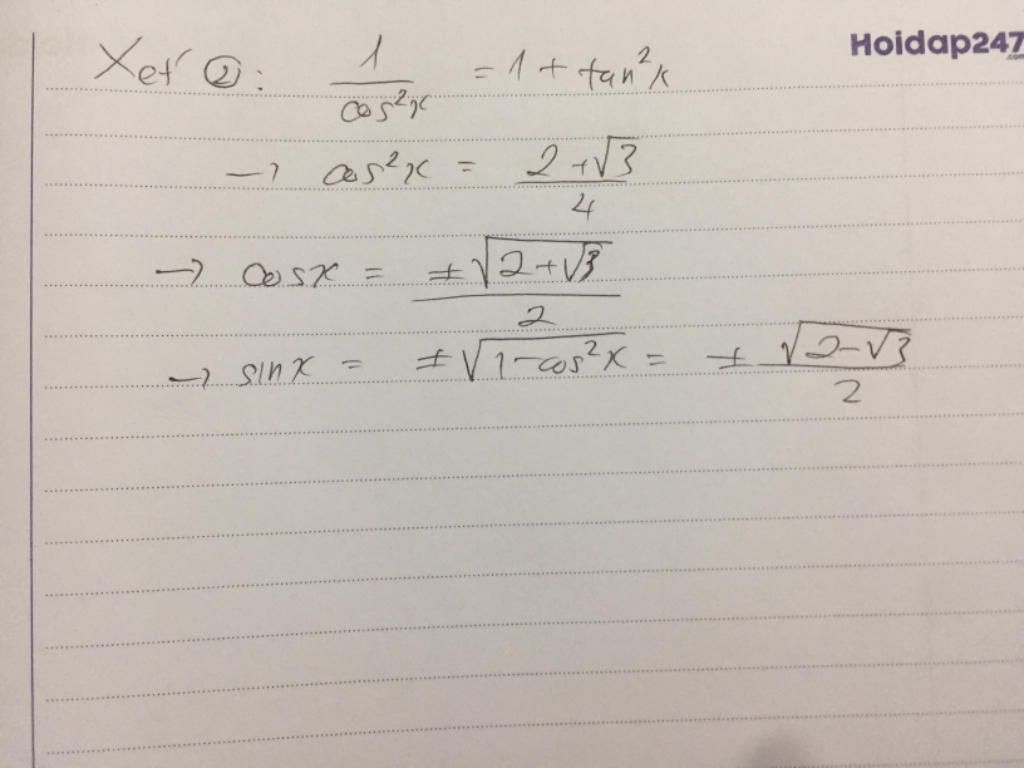 Hoidap247.com
Xét ②: 1/cos²x = 1 + tan²x
→ cos²x = (2+√3)/4
→ cosx = ±√(2+√3)/2
→ sinx = ±√(1-cos²x) = ±√(2-√3)/2